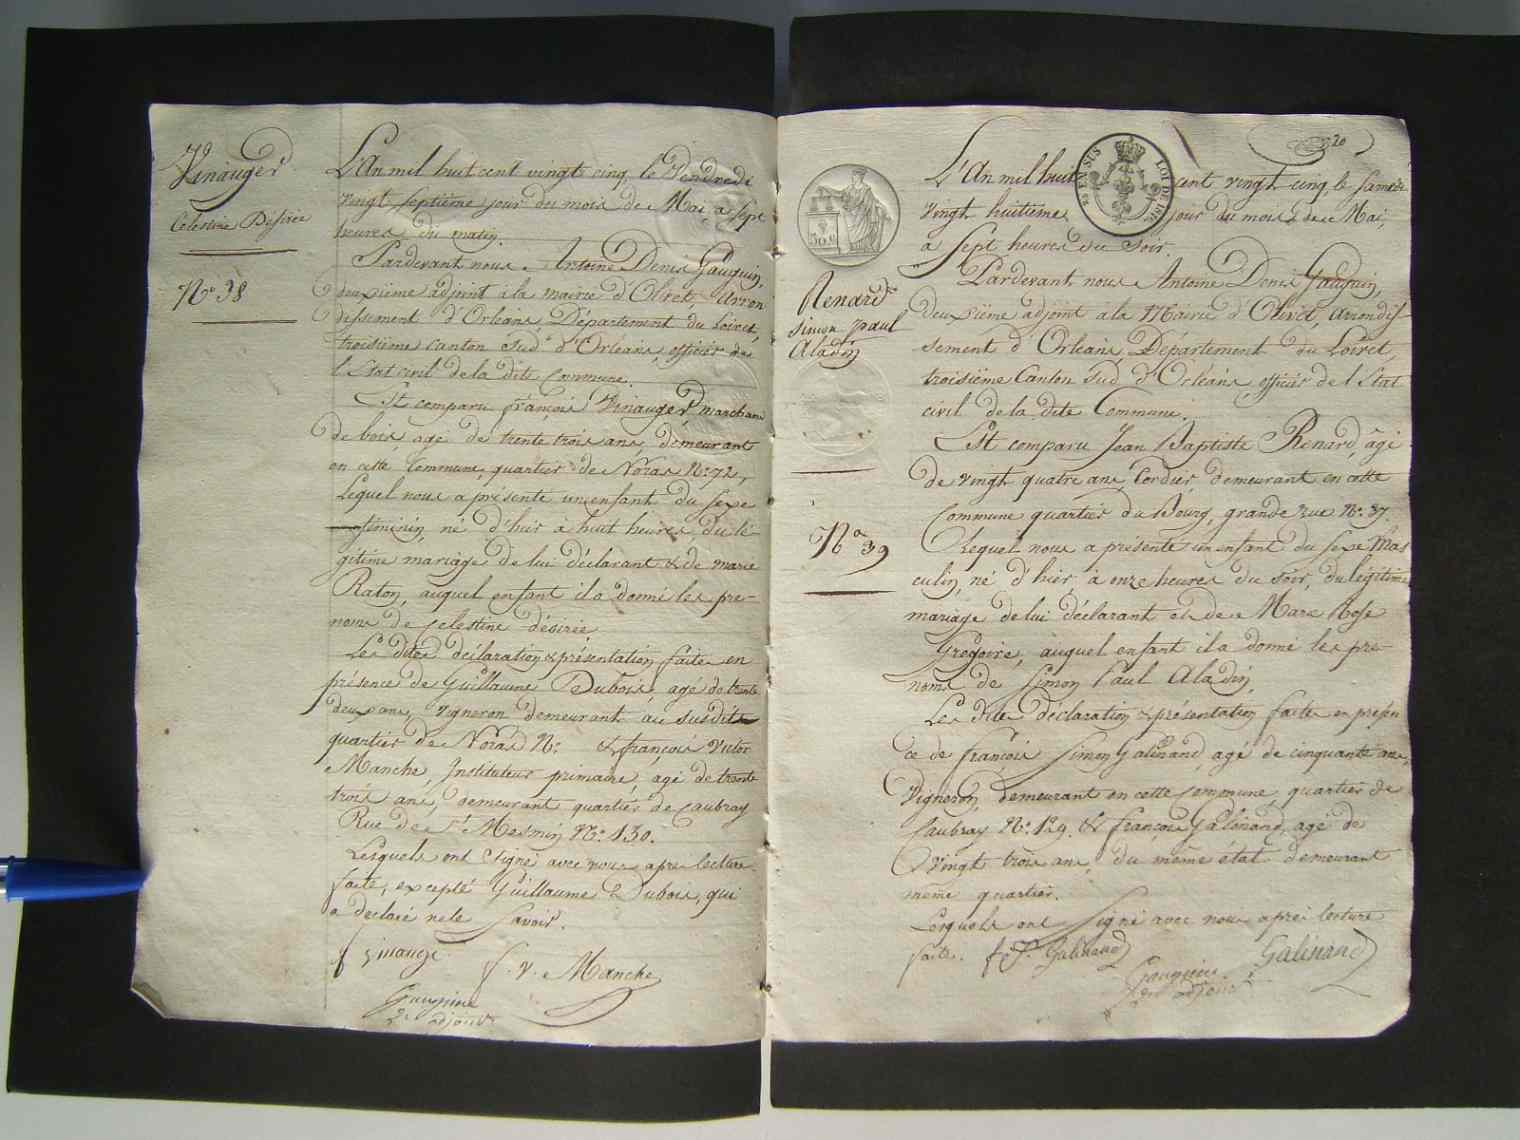 Vinauger
Celestine Désirée
N.º 38
L'An mil huit cent vingt cinq, le Vendredi
vingt septième jour du mois de Mai, a sept
heures du matin.
Pardevant nous Antoine Denis Gauguin,
deuxième adjoint à la mairie d'Olivet, Arron
dissement d'Orleans, Département du Loiret,
troisième canton sud d'Orleans, officier de
l'Etat civil de la dite Commune.
Est comparu françois Vinauger marchand
de bois, agé de trente trois ans, demeurant
en cette Commune, quartier de Noras N.º 72,
Lequel nous a présenté un enfant du sexe
féminin, né d'hier à huit heures, du lé-
gitime mariage de lui déclarant & de marie
Raton, auquel enfant il a donné les pré-
noms de Celestine désirée
Les dites déclaration & présentation faites en
présence de Guillaume Dubois, agé de trente
deux ans, Vigneron demeurant au susdit
quartier de Noras N.º & françois Victor
Manche, Instituteur primaire, agé de trente
trois ans, demeurant quartier de Caubray
Rue de St Mesmin N.º 130.
Lesquels ont signé avec nous après lecture
faite, excepté Guillaume Dubois, qui
a déclaré ne le savoir.
f Vinauger f. v. Manche
2e adjoint
20
EN SUS
LOI DE 1816
30 c
Renard
Simon paul
Aladin
N.º 39
L'An mil huit cent vingt cinq, le samedi
vingt huitième jour du mois de Mai,
a Sept heures du Soir.
Pardevant nous Antoine Denis Gauguin,
deuxième adjoint à la Mairie d'Olivet, arrondis
sement d'Orleans, Département du Loiret,
troisième Canton sud d'Orleans, officier de l'Etat
civil de la dite Commune.
Est comparu Jean Baptiste Renard, âgé
de vingt quatre ans, Cordier, demeurant en cette
Commune quartier du Bourg, grande rue N.º 37.
Lequel nous a présenté un enfant du sexe Mas
culin, né d'hier, à onze heures du soir, du légitime
mariage de lui déclarant et de Marie Rose
Grégoire, auquel enfant il a donné les pré-
noms de Simon Paul Aladin,
Les dites déclaration & présentation faites en présen
ce de françois Simon Galinand, agé de cinquante ans,
Vigneron, demeurant en cette Commune, quartier de
Caubray N.º 129. & françois Galinand, agé de
vingt trois ans, du même état demeurant
même quartier.
Lesquels ont signé avec nous après lecture
faite. f. S. Galinand Galinand
2e adjoint